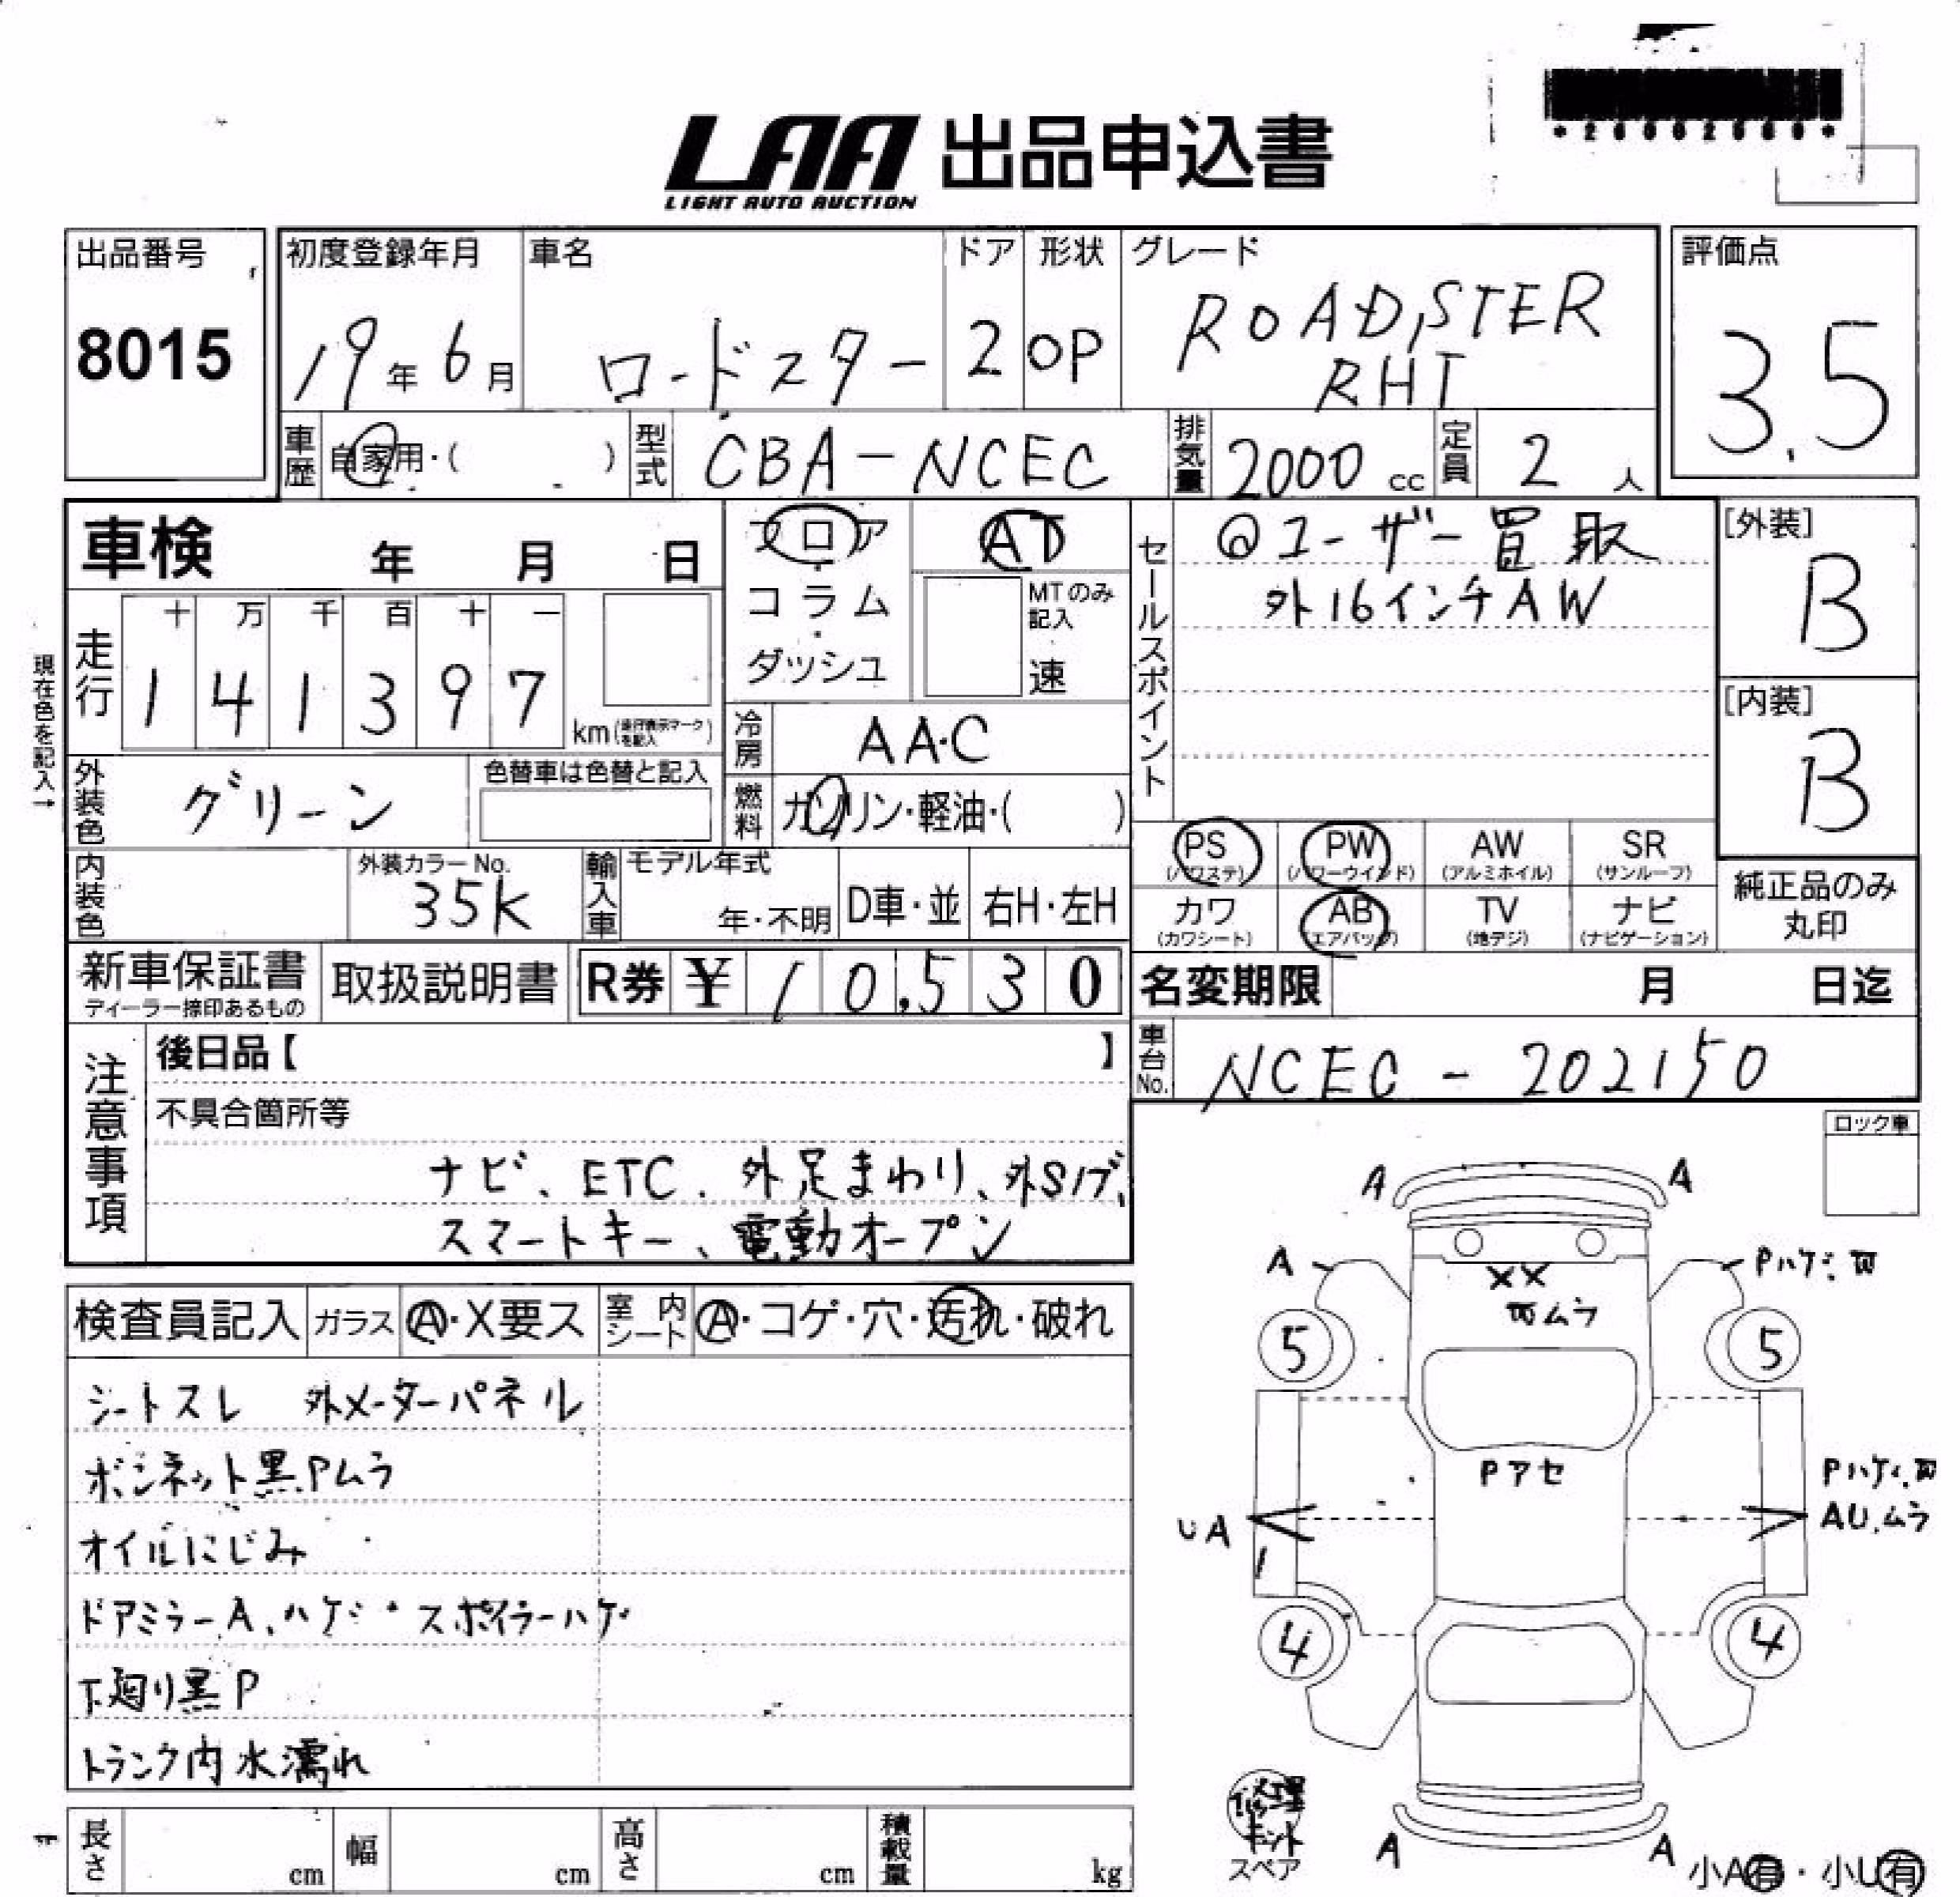 LAA 出品申込書
LIGHT AUTO AUCTION
出品番号
8015
初度登録年月
19年 6月
車名
ロードスター
ドア
2
形状
OP
グレード
ROADSTER
RHT
評価点
3.5
車歴 自家用・( )
型式 CBA-NCEC
排気量 2000 cc
定員 2 人
車検 年 月 日
フロア・コラム・ダッシュ
AT
MTのみ記入
速
セールスポイント
@ユーザー買取
外16インチAW
[外装]
B
[内装]
B
現在色を記入→
走行
十 万 千 百 十 一
1 4 1 3 9 7
km (走行表示マークを記入)
冷房 AAC
外装色 グリーン
色替車は色替と記入
燃料 ガソリン・軽油・( )
PS (パワステ)
PW (パワーウインド)
AW (アルミホイル)
SR (サンルーフ)
カワ (カワシート)
AB (エアバッグ)
TV (地デジ)
ナビ (ナビゲーション)
純正品のみ
丸印
内装色
外装カラーNo.
35K
輸入車
モデル年式
年・不明
D車・並
右H・左H
新車保証書
ディーラー捺印あるもの
取扱説明書
R券 ¥ 10,530
名変期限 月 日迄
車台No. NCEC-202150
注意事項
後日品【 】
不具合箇所等
ナビ、ETC、外足まわり、外Sハブ、
スマートキー、電動オープン
ロック車
検査員記入
ガラス Ⓐ・X要ス
室内シート Ⓐ・コゲ・穴・汚れ・破れ
シートスレ 外メーターパネル
ボンネット黒Pムラ
オイルにじみ
ドアミラーA、ハゲ・スポイラーハゲ
下廻り黒P
トランク内水濡れ
A A
A
XX
ムラ
5 5
Pアセ
UA
AU.ムラ
1
4 4
修理キット
スペア
A A
小A有・小U有
長さ cm
幅 cm
高さ cm
積載量 kg